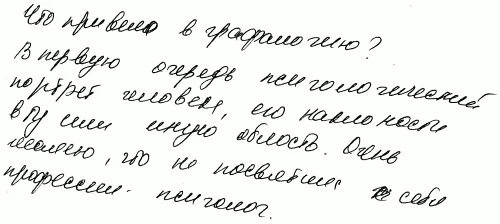 Что привело в графологию?
В первую очередь психологический
портрет человека, его наклоности
в ту или иную область. Очень
жалею, что не посвятил себя
профессии психолог.